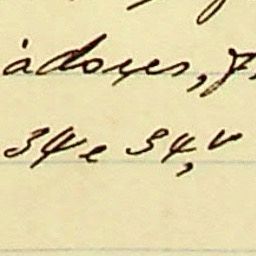 adores, f.
34 e 34, v